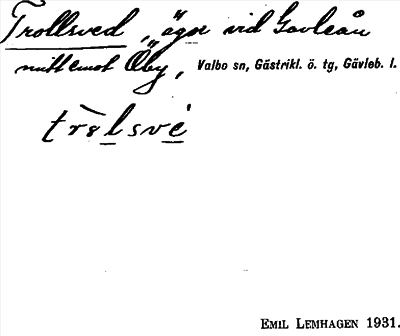 Trollsved, „ägor vid Gavleån
mitt emot Öby, Valbo sn, Gästrikl. ö. tg, Gävleb. l.
trolsve
EMIL LEMHAGEN 1931.